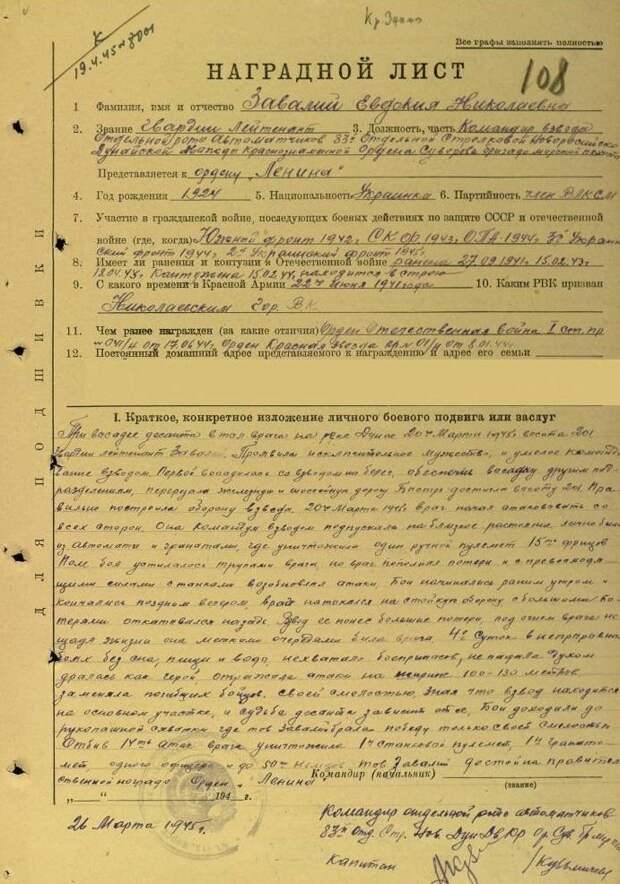 Кр Знам
К
19.4.45 г
Все графы заполнять полностью
НАГРАДНОЙ ЛИСТ
108
1 Фамилия, имя и отчество Завалий Евдокия Николаевна
2. Звание Гвардии лейтенант 3. Должность, часть Командир взвода
отдельной роты Автоматчиков 83й Отдельной Стрелковой Новороссийско
Дунайской дважды Краснознаменной Ордена Суворова бригады морской пехоты
Представляется к ордену „Ленина"
4. Год рождения 1924 5. Национальность Украинка 6. Партийность член ВЛКСМ
7. Участие в гражданской войне, последующих боевых действиях по защите СССР и отечественной
войне (где, когда) Южный фронт 1942 г. СКФ 1943 г. О.П.А. 1944 г. 3й Украин
ский фронт 1944 г. 2й Украинский фронт 1945 г.
8. Имеет ли ранения и контузии в Отечественной войне ранена 27.09.1941 г. 15.02.43 г.
Контужена 15.02.44 г. находится в строю
9. С какого времени в Красной Армии 22го Июня 1941 года 10. Каким РВК призван
Николаевским Гор. ВК
11. Чем ранее награжден (за какие отличия) Орден Отечественная война I ст. пр
от 17.06.44 г. орден Красная Звезда пр № 01/н от 8.01.44 г.
12. Постоянный домашний адрес представляемого к награждению и адрес его семьи
ДЛЯ ПОДШИВКИ
I. Краткое, конкретное изложение личного боевого подвига или заслуг
При высадке десанта в тыл врага на реке Дунае 20го Марта 1945 г. высота 201
Гвардии лейтенант Завалий. Проявила исключительное мужество, и умелое командо
вание взводом. Первой высадилась со взводом на берег, обеспечив высадку другим под
разделениям, перерезала железную и шоссейную дорогу. Быстро достигла высоту 201. Пра
вильно построила оборону взвода. 20го Марта 1945 г. враг начал атаковать со
всех сторон. Она командуя взводом подпускала на близкое растояние лично била
из автомата и гранатами, где уничтожила один ручной пулемет 15ть фрицов
Поле боя устилалось трупами врага, но враг пополнял потери и с превосходя
щими силами с танками возобновлял атаки. Бои начинались раним утром и
кончались поздним вечером, враг натолкался на стойкую оборону с большими по
терями откатывался назад. Взвод ее понес большие потери, под огнем врага не
щадя жизни она меткими очередями била врага. 4е Суток в непрерывных
боях без сна, пищи и воды, нехватало боеприпасов, не падала духом
дралась как герой, отражала атаки на 100-130 метров
заменяла погибших бойцов. своей смелостью, зная что взвод находится
на основном участке, и судьба десанта зависит от ее, Бои доходили до
рукопашной схватки где тов Завалий брала победу только своей смелостью
Отбив 14ть атак врага уничтожила 1н станковой пулемет, 1н гранато
мет одного офицера и до 50ти немцев. тов Завалий достойна правитель
ственной награды Орден „Ленина"
Командир (начальник)
(звание)
„ " 194 г.
26 Марта 1945 г.
Командир отдельной роты автоматчиков
83й Отд. Стр. Нов. Дун Дв Кр Ор. Сув. Бр. Мор
Капитан /Кузьмичев/